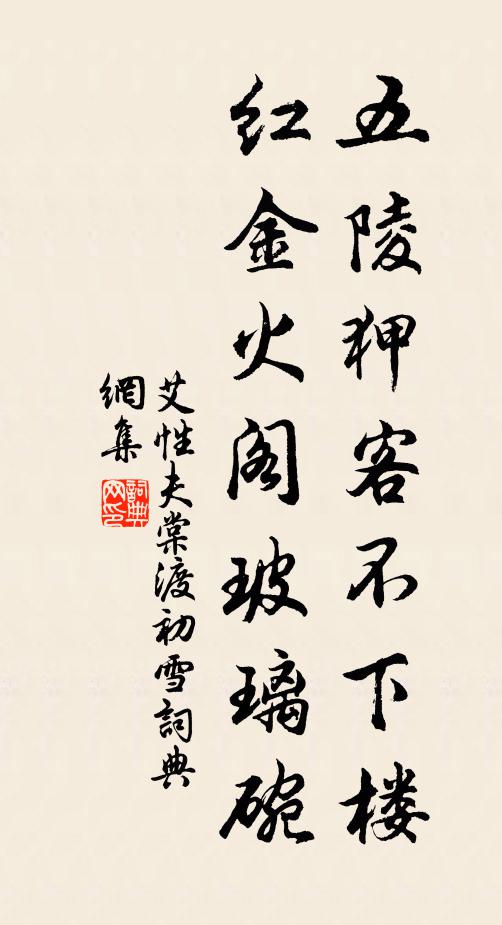 五陵狎客不下楼
红金火阁玻璃碗
艾性夫棠渡初雪詞典
網集
詞典網印